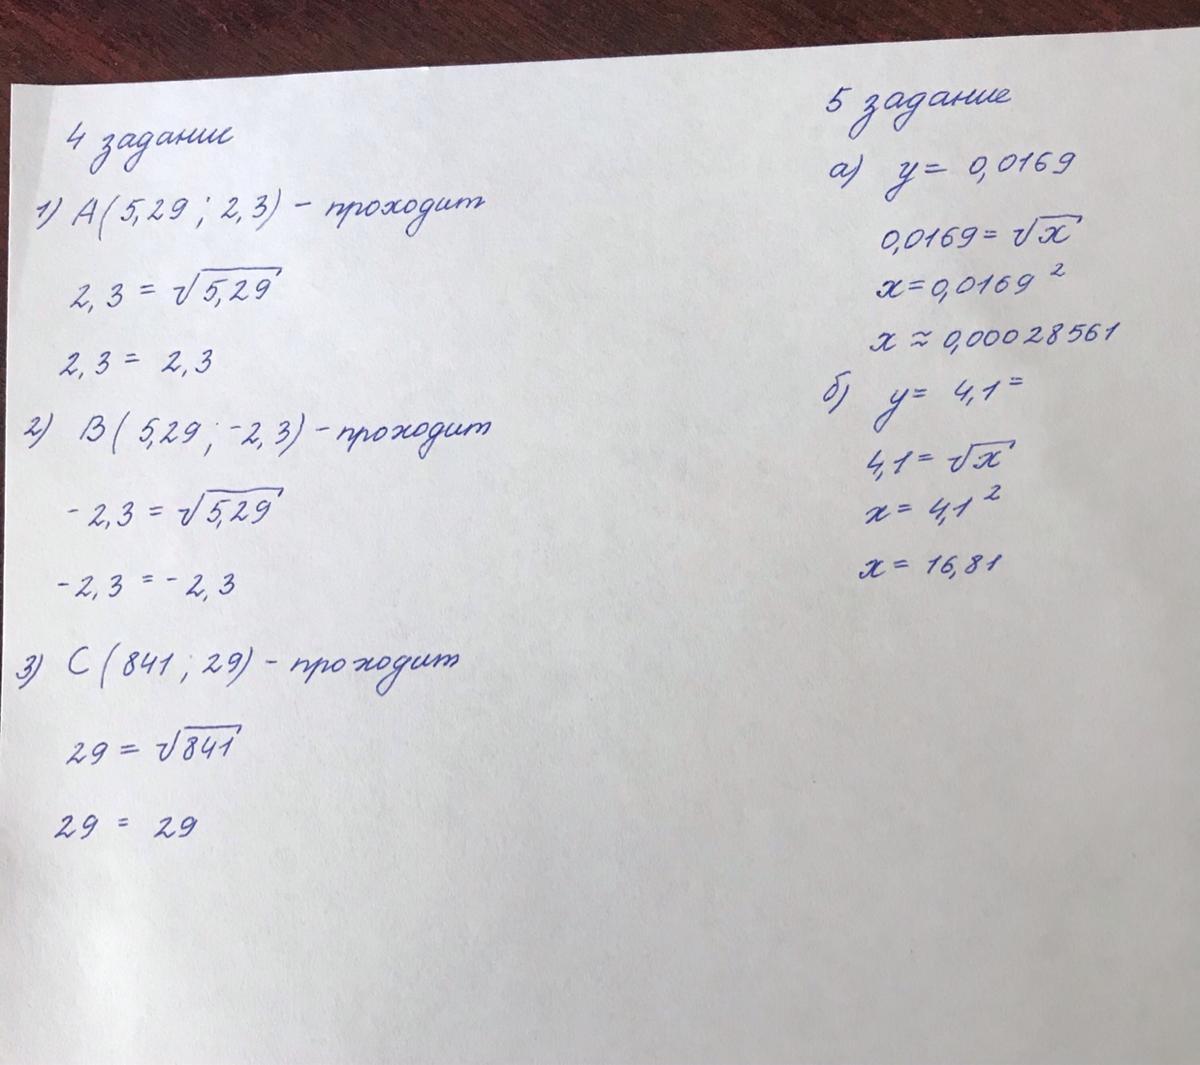 4 задание
1) A(5,29; 2,3) - проходит
2,3 = √5,29
2,3 = 2,3
2) B(5,29; -2,3) - проходит
-2,3 = √5,29
-2,3 = -2,3
3) C(841; 29) - проходит
29 = √841
29 = 29
5 задание
а) y = 0,0169
0,0169 = √x
x = 0,0169²
x ≈ 0,00028561
б) y = 4,1 =
4,1 = √x
x = 4,1²
x = 16,81